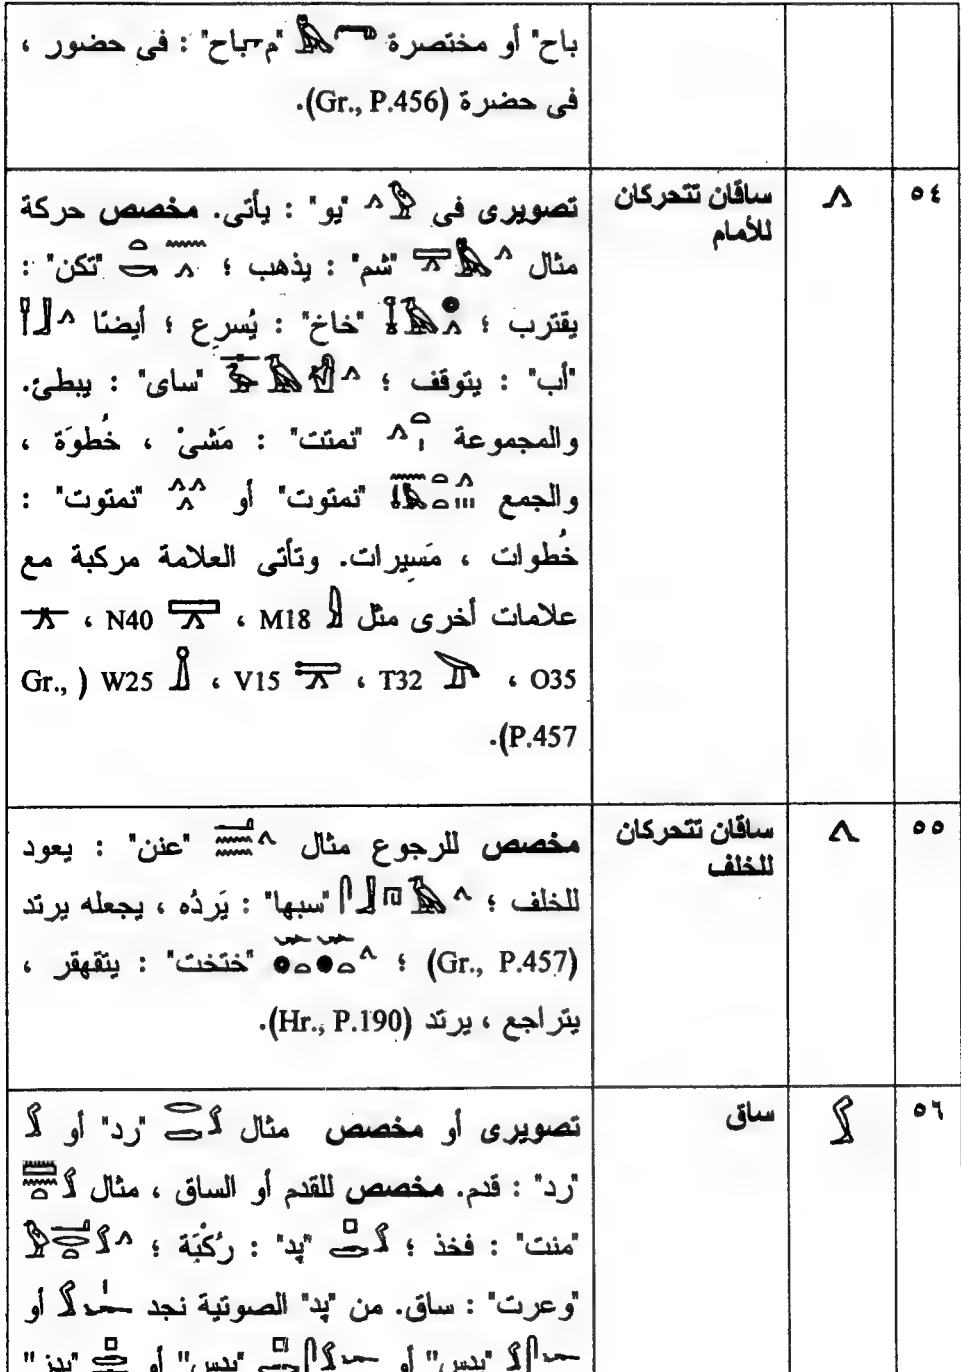 باح" أو مختصرة "م-باح" : فى حضور ،
فى حضرة (Gr., P.456).
٥٤
ساقان تتحركان
للأمام
تصويرى فى "يو" : يأتى. مخصص حركة
مثال "شم" : يذهب ؛ "تكن" :
يقترب ؛ "خاخ" : يُسرِع ؛ أيضًا
"أب" : يتوقف ؛ "ساى" : يبطئ.
والمجموعة "نمتت" : مَشىْ ، خُطوَة ،
والجمع "نمتوت" أو "نمتوت" :
خُطوات ، مَسِيرات. وتأتى العلامة مركبة مع
علامات أخرى مثل M18 ، N40 ،
O35 ، T32 ، V15 ، W25 ( Gr.,
P.457).
٥٥
ساقان تتحركان
للخلف
مخصص للرجوع مثال "عنن" : يعود
للخلف ؛ "سبها" : يَردُه ، يجعله يرتد
(Gr., P.457) ؛ "ختخت" : يتقهقر ،
يتراجع ، يرتد (Hr., P.190).
٥٦
ساق
تصويرى أو مخصص مثال "رد" أو
"رد" : قدم. مخصص للقدم أو الساق ، مثال
"منت" : فخذ ؛ "پد" : رُكْبَة ؛
"وعرت" : ساق. من "پد" الصوتية نجد أو
"بدس" أو "پدس" أو "پدز"